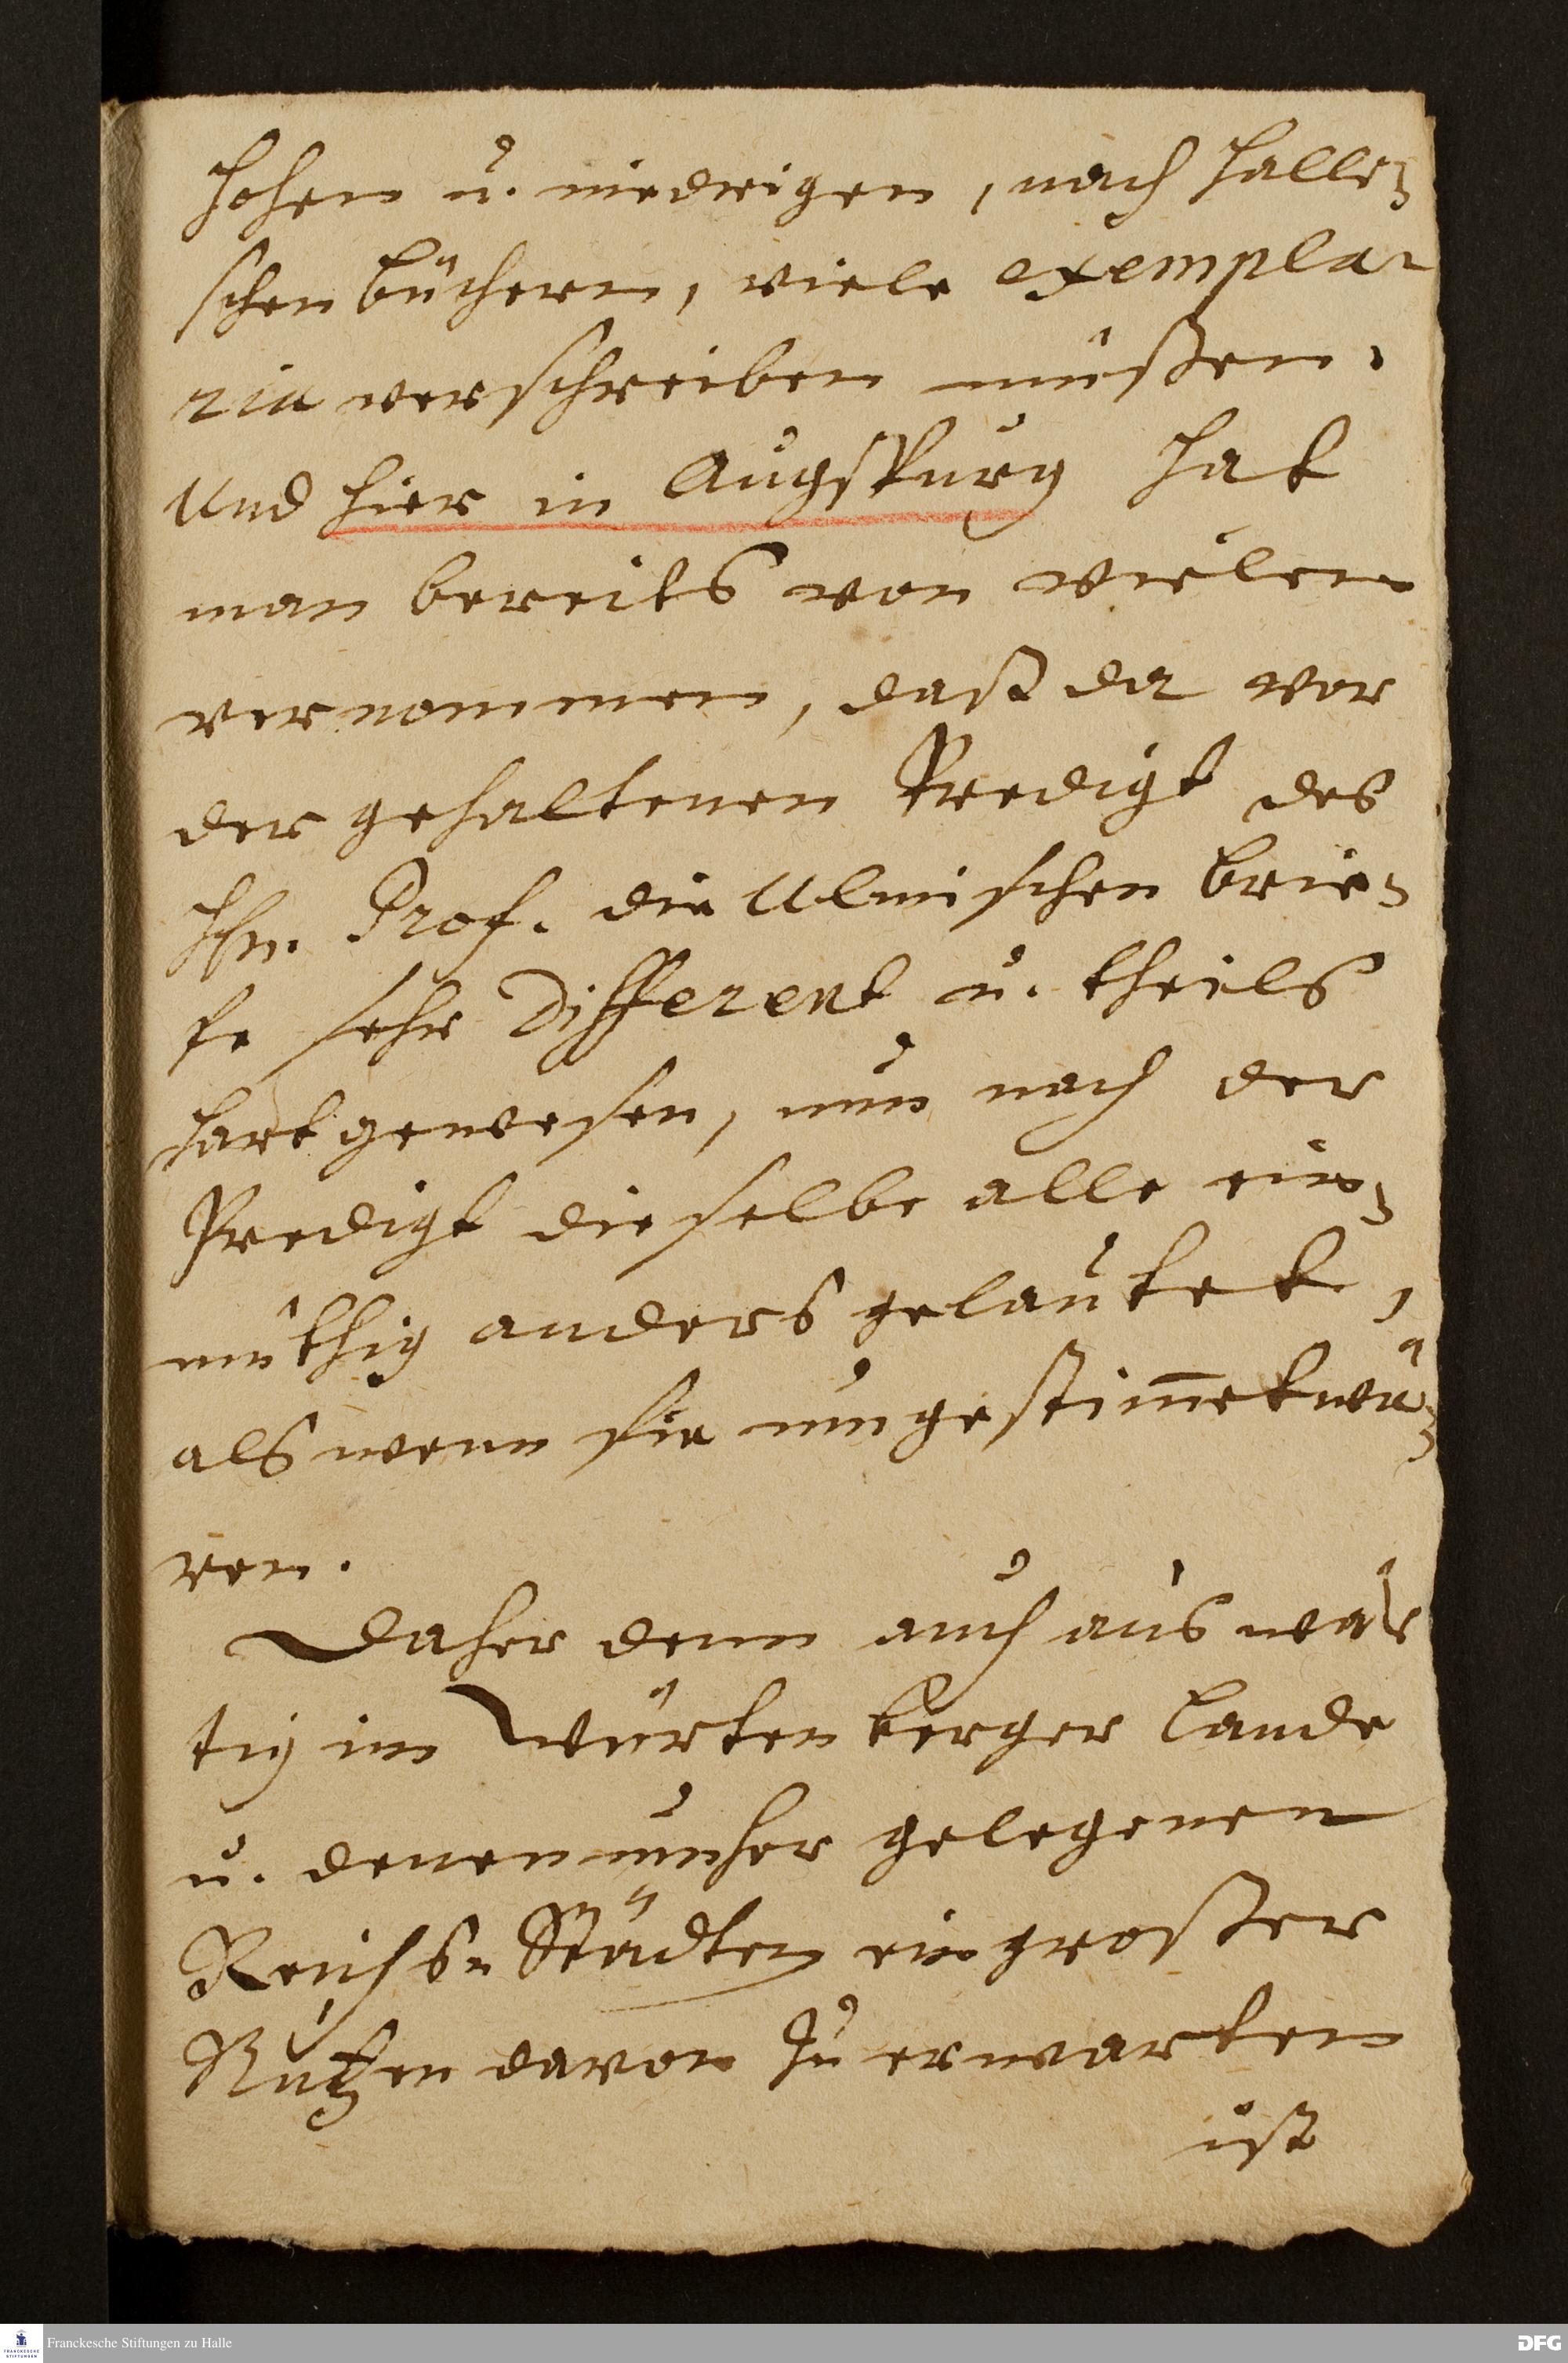 hohen u. niedrigen, nach Halli-
schen büchern, viele exempla-
ria verschreiben müßen.
Und hier in Augspurg hat
man bereits von vielen
vernommen, daß da vor
der gehaltenen Predigt des
Hhn. Prof. die Ulmischen brie-
fe sehr different u. theils
hart gewesen, nun nach der
Predigt dieselbe alle ein-
müthig anders gelautet,
als wenn sie umgestim̅et wä-
ren.
Daher denn auch auswär
tig im Würtenberger Lande
u. denen umher gelegenen
Reichs-Städten ein großer
Nutzen davon zu erwarten
ist
Franckesche Stiftungen zu Halle
DFG